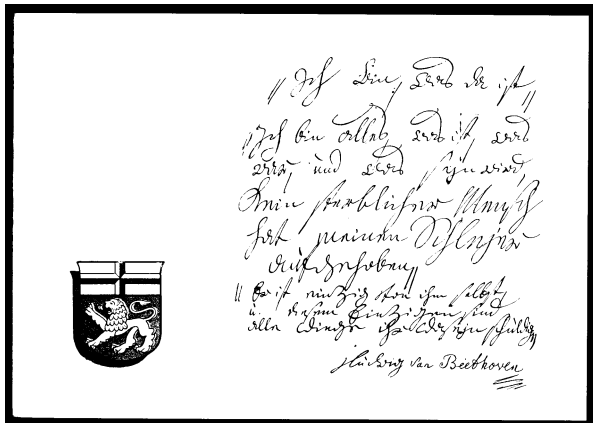 "Ich bin, was da ist"
"Ich bin alles, was ist, was
war, und was seyn wird,
Kein sterblicher Mensch
hat meinen Schleyer
aufgehoben"
"Er ist einzig von ihm selbst,
u. diesem Einzigen sind
alle Dinge ihr Daseyn schuldig"
Ludwig van Beethoven